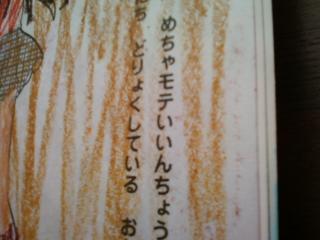 めちゃモテいいんちょう
ち どりょくしている お